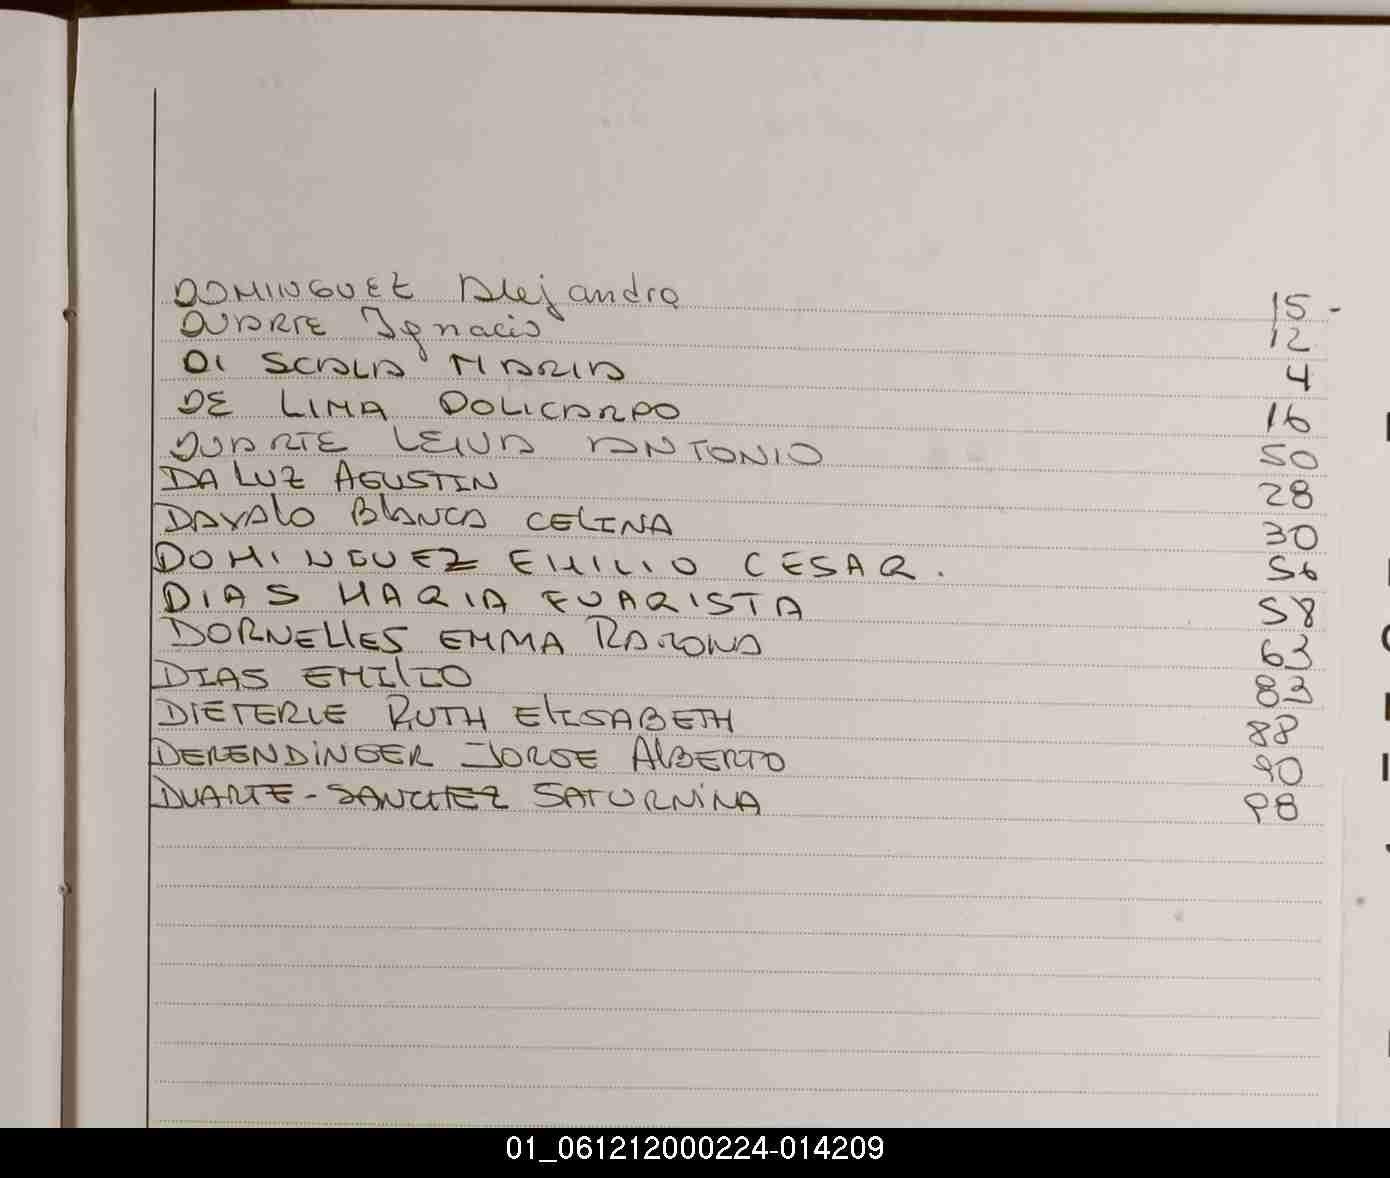 DOMINGUEZ Alejandro 15 -
DUARTE Ignacio 12
DI SCALA MARIA 4
DE LIMA POLICARPO 16
DUARTE LEIVA ANTONIO 50
DA LUZ AGUSTIN 28
DAVALO BLANCA CELINA 30
DOMINGUEZ EMILIO CESAR. 56
DIAS MARIA EVARISTA 58
DORNELLES EMMA RAMONA 63
DIAS EMILIO 83
DIETERLE RUTH ELISABETH 88
DERENDINGER JORGE ALBERTO 90
DUARTE-SANCHEZ SATURNINA 98
01_061212000224-014209